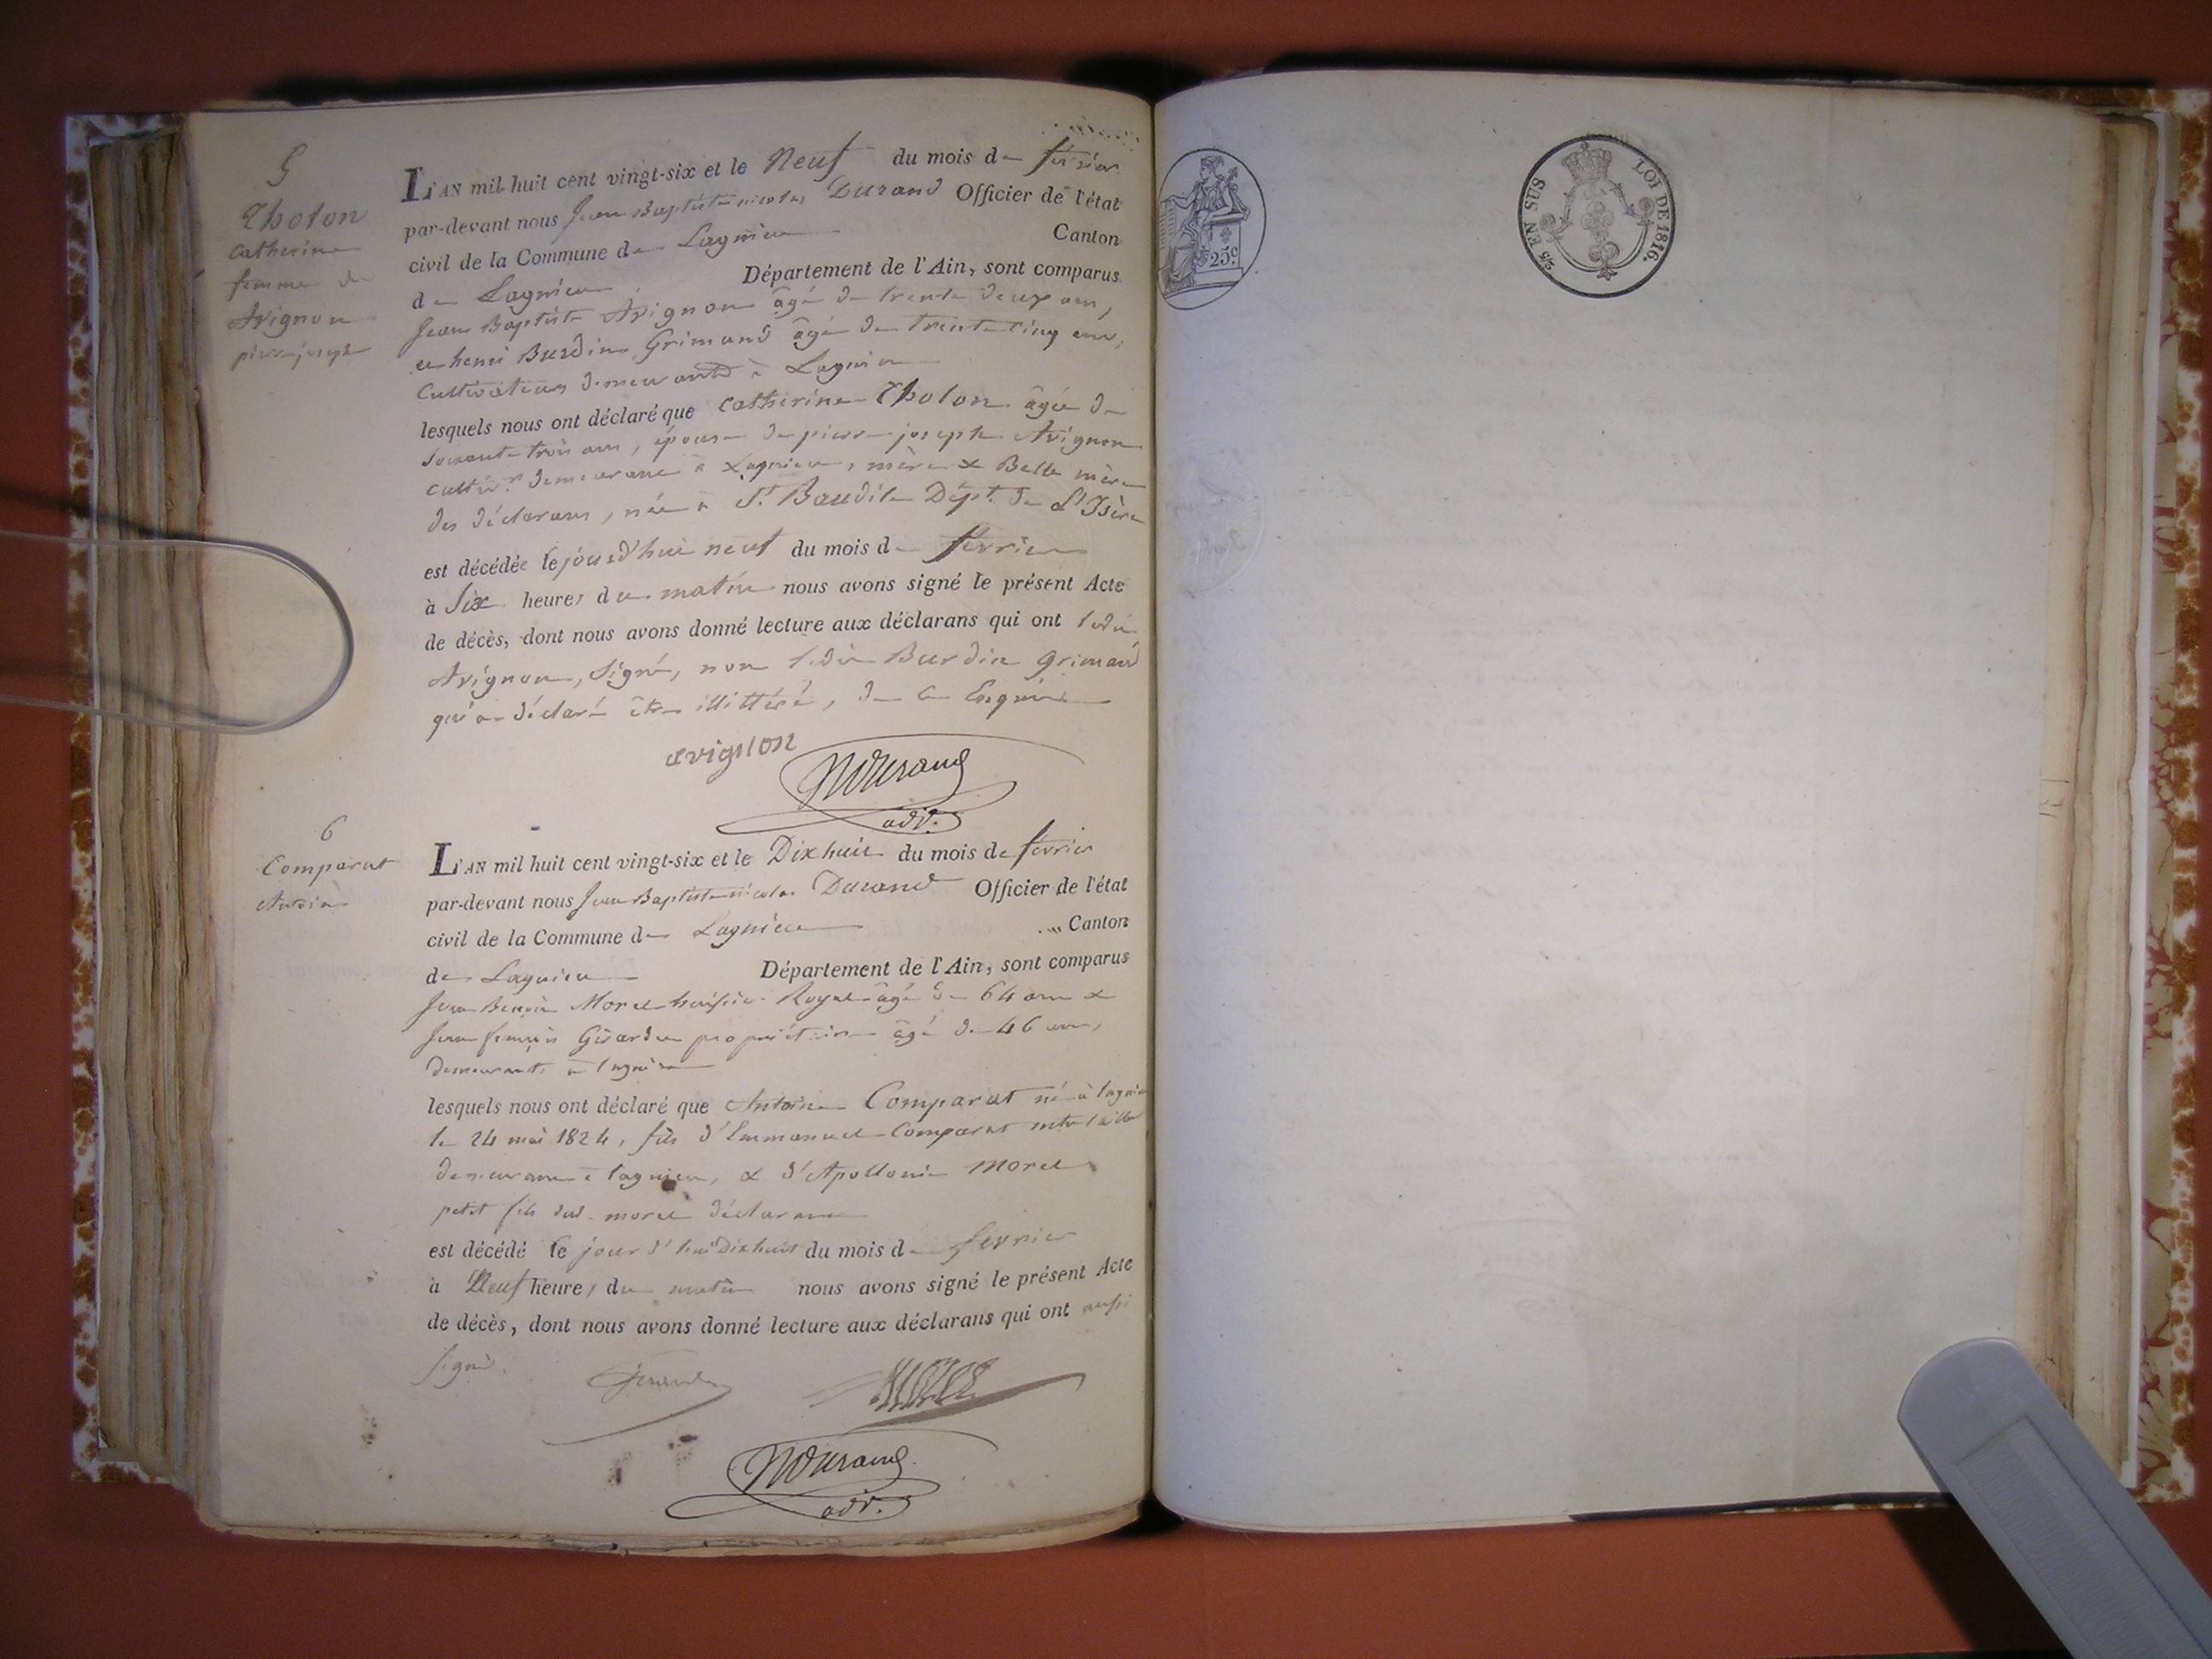 5
Tholon
Catherine
femme de
Avignon
pierre joseph
L'AN mil huit cent vingt-six et le Neuf du mois de février
par-devant nous Jean Baptiste nicolas Durand Officier de l'état
civil de la Commune de Lagnieu Canton
de Lagnieu Département de l'Ain, sont comparus
Jean Baptiste Avignon âgé de trente deux ans,
et henri Burdin Grimaud âgé de trente cinq ans,
Cultivateurs demeurants à Lagnieu
lesquels nous ont déclaré que Catherine Tholon âgée de
soixante trois ans, épouse de pierre joseph Avignon
cultiv.r demeurant à Lagnieu, mère & Belle mère
des déclarans, née à St. Baudile Dépt. de L'Isère
est décédée le jourd'hui neuf du mois de février
à Six heures du matin nous avons signé le présent Acte
de décès, dont nous avons donné lecture aux déclarans qui ont ledit
Avignon, signé, non ledit Burdin Grimaud
qui a déclaré être illittéré, de ce Enquis
avignon
NDurand
adj.
6
Comparat
Antoine
L'AN mil huit cent vingt-six et le Dix huit du mois de février
par-devant nous Jean Baptiste nicolas Durand Officier de l'état
civil de la Commune de Lagnieu Canton
de Lagnieu Département de l'Ain, sont comparus
Jean Benoit Morel huissier Royal âgé de 64 ans &
Jean françois Girardin propriétaire âgé de 46 ans,
demeurants à lagnieu
lesquels nous ont déclaré que Antoine Comparat né à lagnieu
le 24 mai 1824, fils d'Emmanuel Comparat
demeurant à lagnieu, & d'Apollonie Morel
petit fils dud. morel déclarant
est décédé le jour d'hui Dix huit du mois de fevrier
à Neuf heures du matin nous avons signé le présent Acte
de décès, dont nous avons donné lecture aux déclarans qui ont aussi
signé.
Morel
NDurand
adj.
25c
2/5 EN SUS
LOI DE 1816.